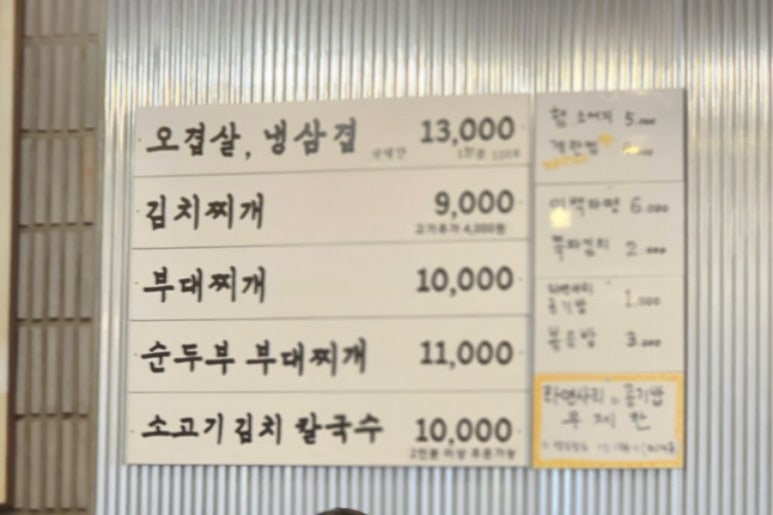 오겹살, 냉삼겹 국내산 13,000
김치찌개 9,000
고기추가 4,000원
부대찌개 10,000
순두부 부대찌개 11,000
소고기김치 칼국수 10,000
2인분 이상 주문가능
햄 소세지 5.000
계란찜
6.000
2.000
라면사리
공기밥 1.000
볶음밥 3.000
라면사리 공기밥
무제한